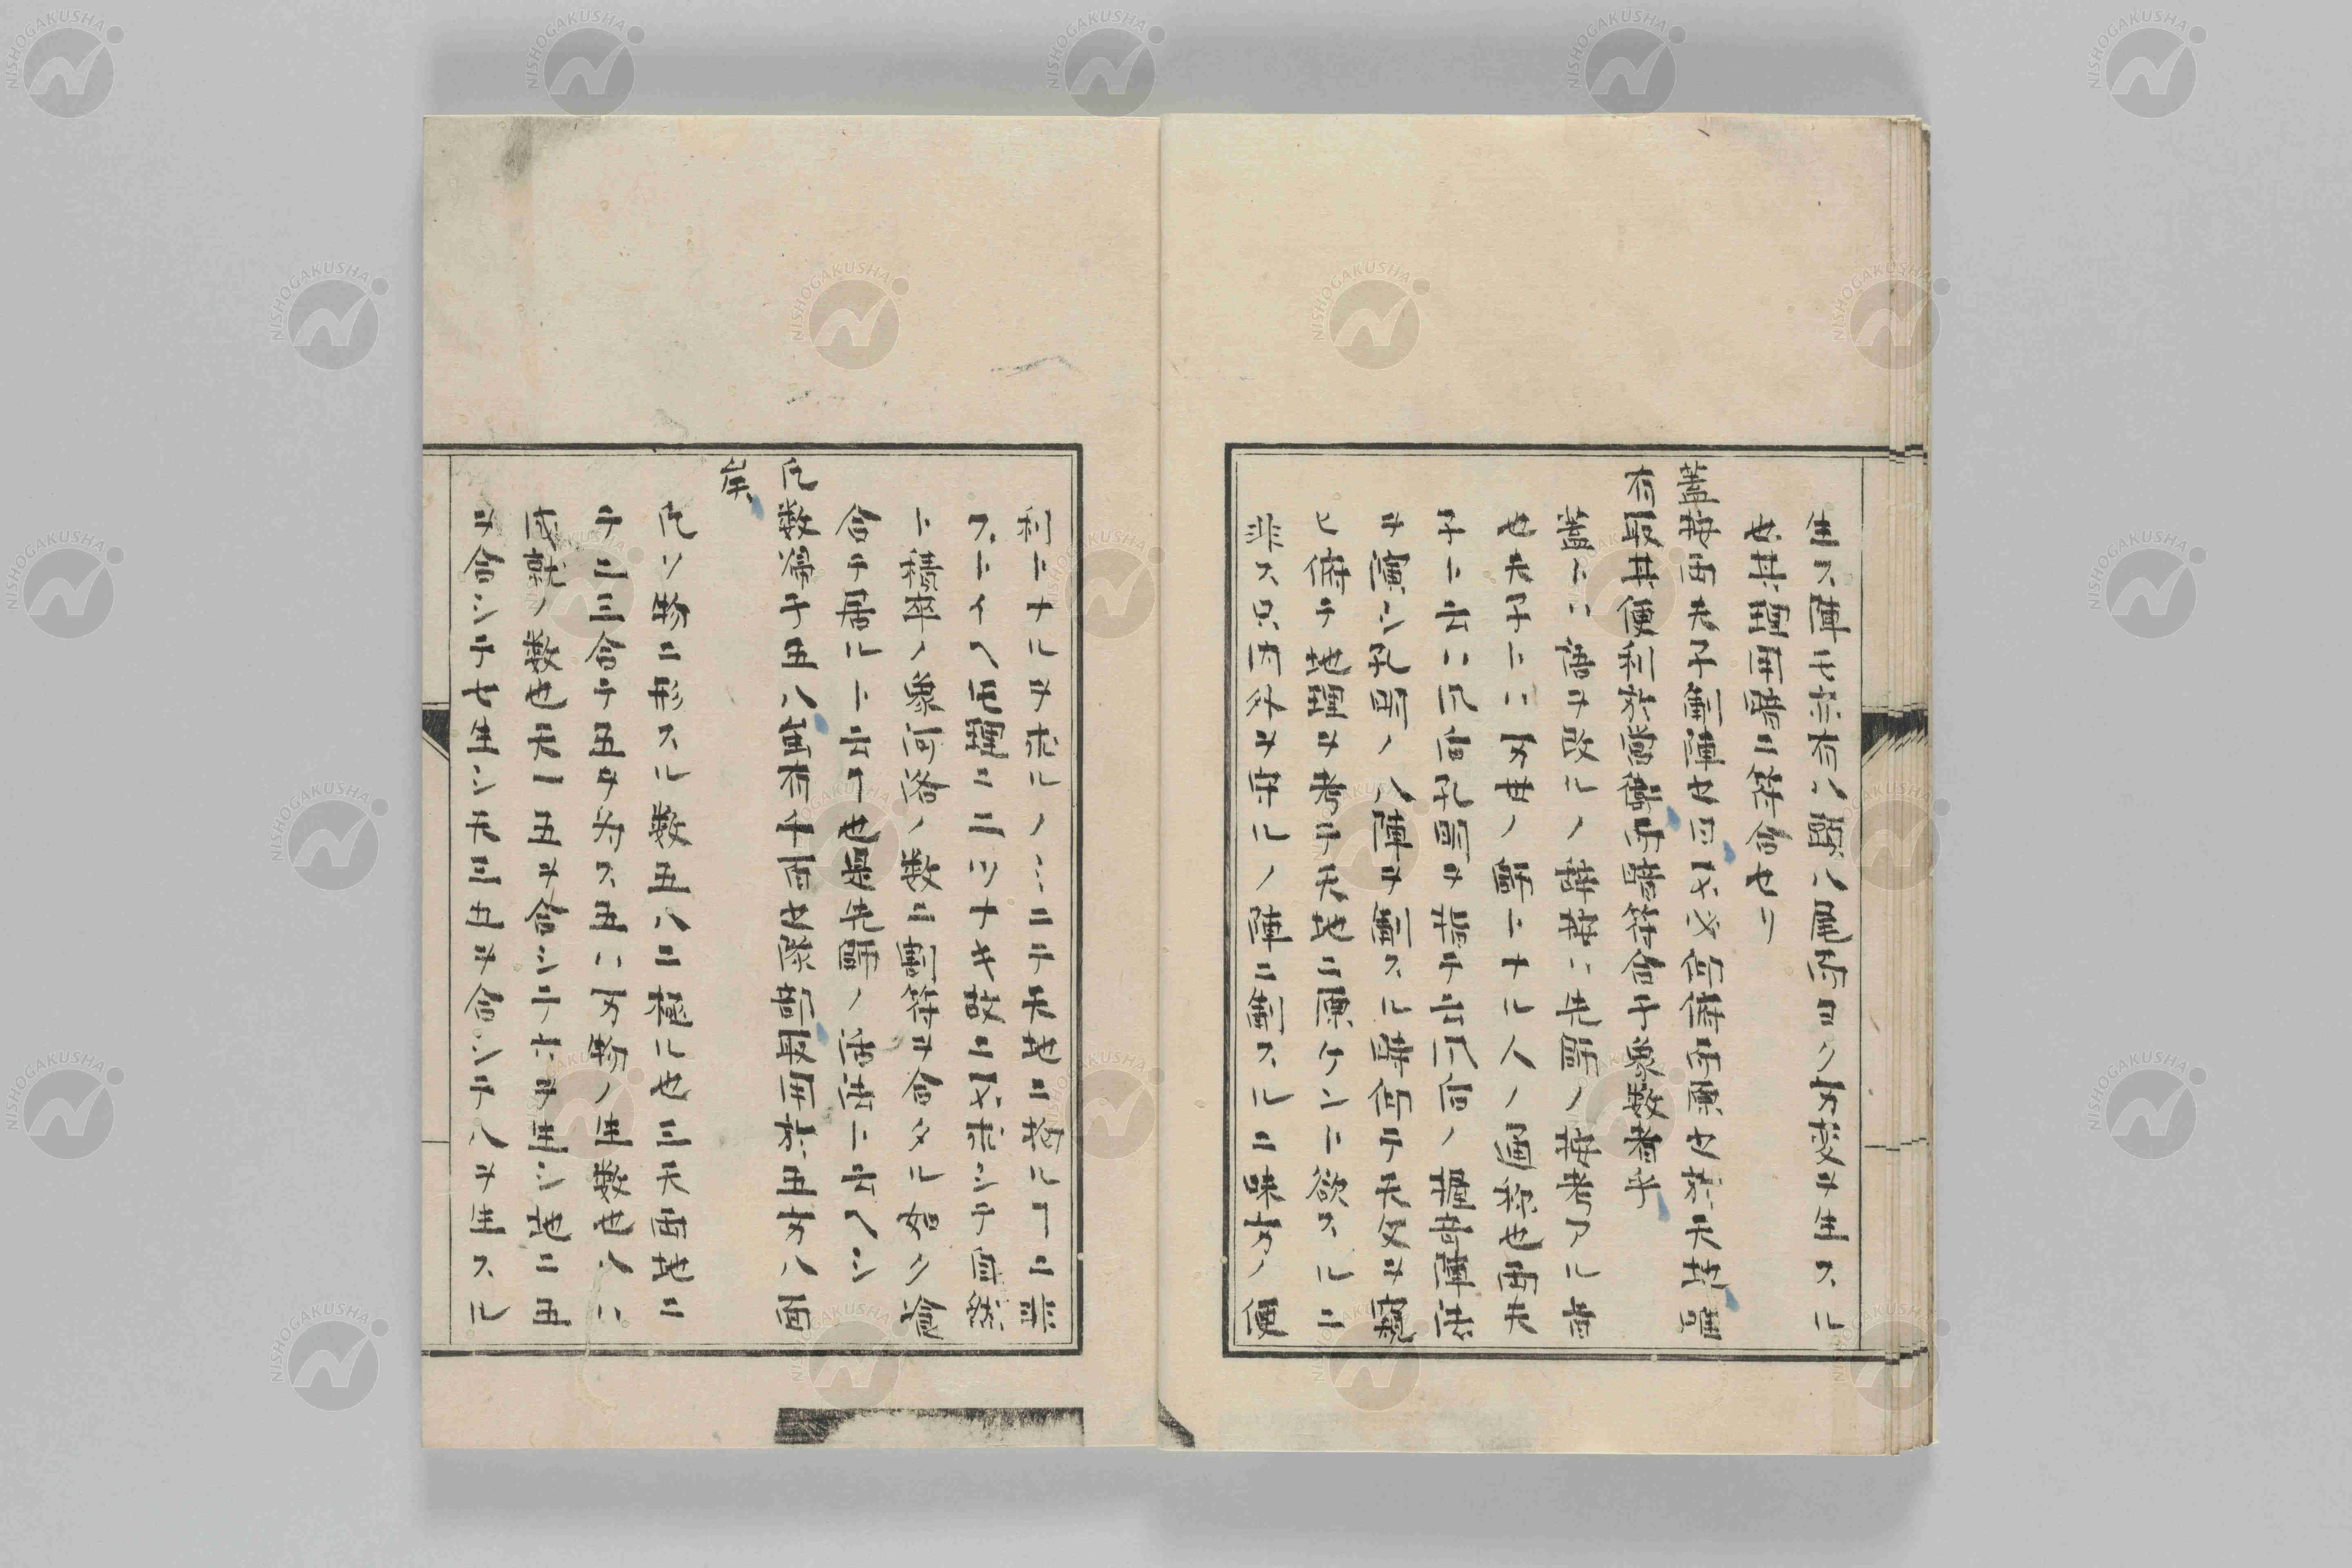 生ス陣モ亦有八頭八尾而曰ク万変ヲ生スル
也其理用暗ニ符合セリ
蓋按西夫子制陣也曰不必仰俯而原也於天地理
有取其便利於営衛而暗符合乎象数者乎
蓋トハ語ヲ改ルノ辞按ハ先師ノ按考アル昔
也夫子トハ万世ノ師トナル人ノ通称也西夫
子ト云ハ爪宙孔明ヲ指テ云爪宙ノ握奇陣法
ヲ演シ孔明ノ八陣ヲ制スル時仰テ天文ヲ窺
ヒ俯テ地理ヲ考ヲ天地ニ原ケント欲スルニ
非ス只内外ヲ守ルノ陣ニ制スルニ味方ノ便
利トナルヲホルノミニテ天地ニ拘ルヿニ非
ストイヘ圧理ニ二ツナキ故ニ不求シテ自然
ト積卒ノ象河洛ノ数ニ割符ヲ合タル如ク脗
合テ居ルト云ヿ也是先師ノ活法ト云ヘシ
凡数帰于五八益有千百也隊部取用於五方八面
矣
凡ソ物ニ形スル数五八ニ極ル也三天両地ニ
テ二三合テ五ヲ為ス五ハ万物ノ生数也八ハ
成就ノ数也天一五ヲ合シテ六ヲ生シ地二五
ヲ合シテ七生シ天三五ヲ合シテ八ヲ生スル